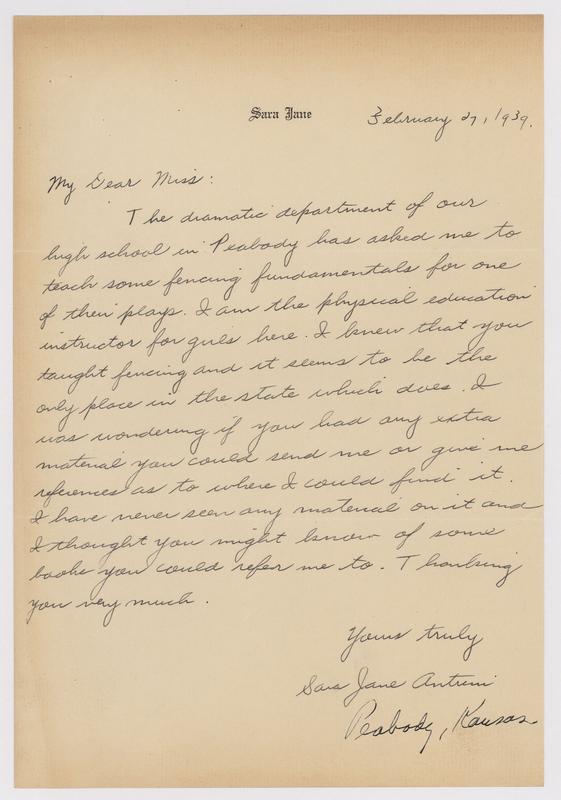 Sara Jane
February 27, 1939.
My Dear Miss:
The dramatic department of our
high school in Peabody has asked me to
teach some fencing fundamentals for one
of their plays. I am the physical education
instructor for girls here. I knew that you
taught fencing and it seems to be the
only place in the state which does. I
was wondering if you had any extra
material you could send me or give me
references as to where I could find it.
I have never seen any material on it and
I thought you might know of some
books you could refer me to. Thanking
you very much.
Yours truly
Sara Jane Antrim
Peabody, Kansas